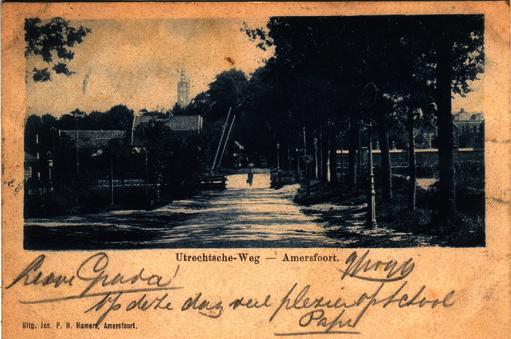 Utrechtsche-Weg — Amersfoort.
Lieve
op deze dag veel plezier op school
Papa
Uitg. Jos. P. H. Hamers, Amersfoort.